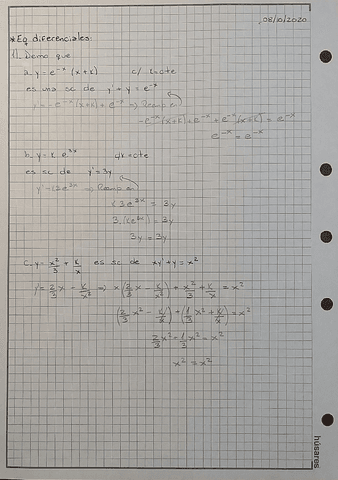 08/10/2020
* Eq. diferenciales:
1). Demo que
a. y = e^-x (x+k) c/ k=cte
es una sc de y' + y = e^-x
y' = -e^-x (x+k) + e^-x ⇒ Reemp en
-e^-x (x+k) + e^-x + e^-x (x+k) = e^-x
e^-x = e^-x
b. y = k e^3x k=cte
es sc de y' = 3y
⇒ Reemp en
k 3 e^3x = 3y
3.(k e^3x) = 3y
3y = 3y
c. y = x²/3 + k/x es sc de xy' + y = x²
y' = 2/3 x - k/x² ⇒ x(2/3 x - k/x²) + x²/3 + k/x = x²
(2/3 x² - k/x) + (1/3 x² + k/x) = x²
2/3 x² + 1/3 x² = x²
x² = x²
húsares